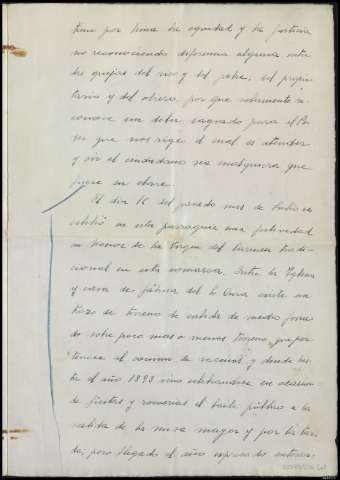 tiene por lema la equidad y la justicia
no reconociendo diferencia alguna entre
las quejas del rico y del pobre, del propie-
tario y del obrero, por que solamente re-
conoce un deber sagrado para el Po-
der que nos rige el cual es atender
y oir al ciudadano sea cualquiera que
fuere su clase.
El dia 16 del pasado mes de Julio se
celebró en esta parroquia una festividad
en honor de la Virgen del Carmen tradi-
cional en esta comarca. Entre la Iglesia
y casa de fábrica del Sr. Cura existe un
trozo de terreno de cabida de medio ferra-
do sobre poco mas o menos terreno que per-
tenecia al comun de vecinos y donde has-
ta el año 1893 vino celebrandose en ocasion
de fiestas y romerias el baile público a la
salida de la misa mayor y por la tar-
de; pero llegado el año expresado